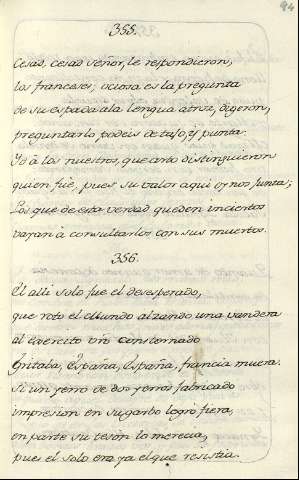 94
355.
Cesad, cesad señor, le respondieron,
los franceses; ociosa es la pregunta
de su espada ala lengua atroz, digeron,
preguntarlo podeis de tajo, y punta.
Yo à los nuestros, que arto distinguieron
quien fuè, pues su valor aqui oy nos junta;
Los que de esta verdad queden inciertos
vayan à consultarlos con sus muertos.
356.
El alli solo fue el desesperado,
que roto el mundo alzando una vandera
al exercito vio consternado
Gritaba, España, España, francia muera.
Si un yerro de dos yerros fabricado
impresion en su garbo logro fiera,
en parte su tesòn lo merecia,
pues el solo era ya el que resistia.